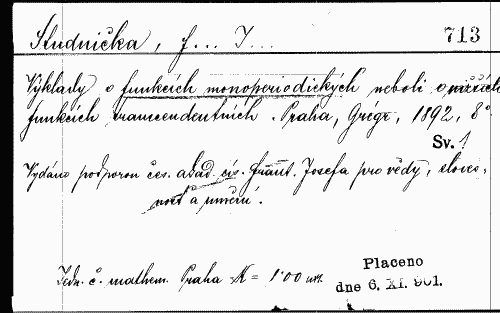 Studnička, F... J... 713
Výklady o funkcích monoperiodických neboli o nižších
funkcích transcendentních. Praha, Grégr, 1892, 8°
Sv. 1
Vydáno podporou čes. akad. cís. Frant. Josefa pro vědy, sloves-
nosť a umění.
Jedn. č. mathem. Praha K = 1·00
Placeno
dne 6. XI. 901.